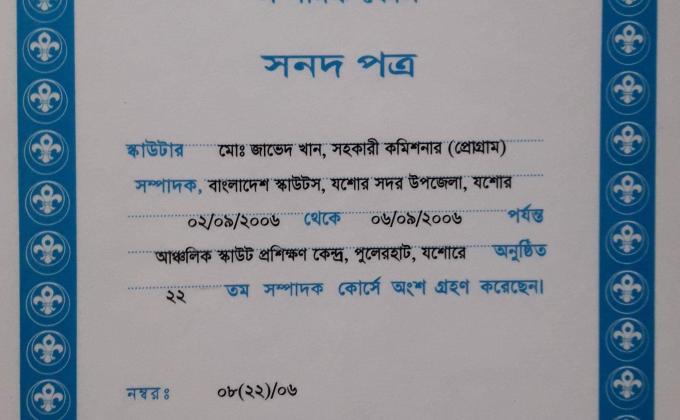 সনদ পত্র
স্কাউটার মোঃ জাভেদ খান, সহকারী কমিশনার (প্রোগ্রাম)
সম্পাদক, বাংলাদেশ স্কাউটস, যশোর সদর উপজেলা, যশোর
০২/০৯/২০০৬ থেকে ০৬/০৯/২০০৬ পর্যন্ত
আঞ্চলিক স্কাউট প্রশিক্ষণ কেন্দ্র, পুলেরহাট, যশোরে অনুষ্ঠিত
২২ তম সম্পাদক কোর্সে অংশ গ্রহণ করেছেন।
নম্বর ঃ ০৮(২২)/০৬